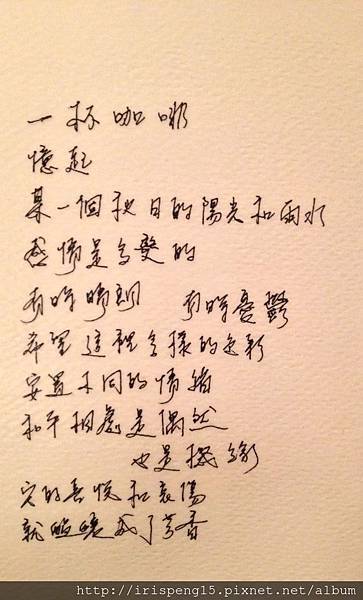 一杯咖啡
憶起
某一個秋日的陽光和雨水
感情是多變的
有時晴朗 有時憂鬱
希望這裡多樣的色彩
安置不同的情緒
和平相處是偶然
也是機緣
它的喜悅和哀傷
就 成了芳香
http://irispeng15.pixnet.net/album